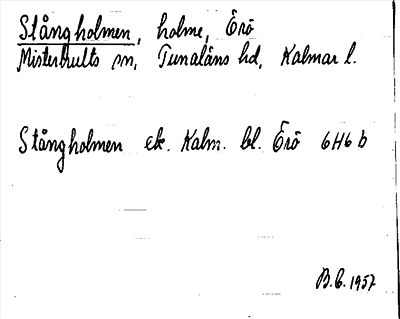 Stångholmen, holme, Örö
Misterhults sn, Tunaläns hd, Kalmar l.
Stångholmen ek. Kalm. bl. Örö 6H6b
B.C. 1957